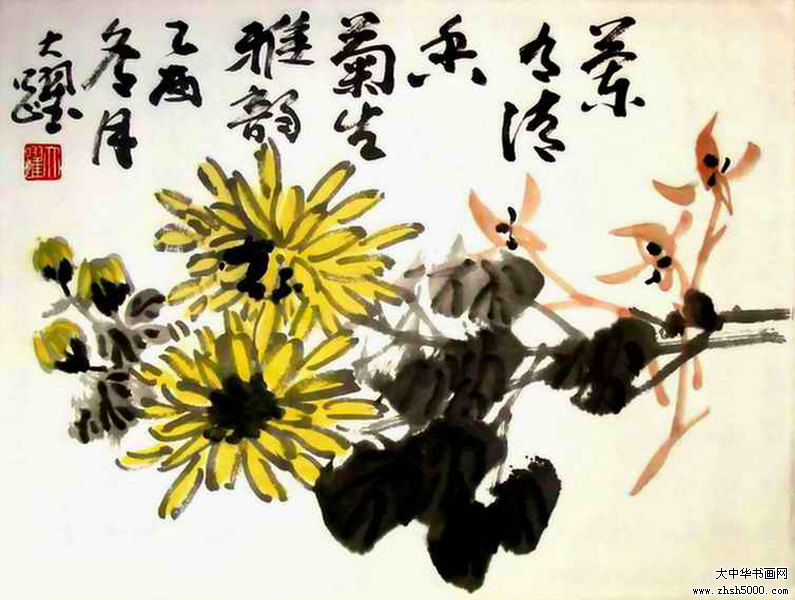 蘭
有清
香
菊生
雅韻
乙酉
冬月
大躍
大中华书画网
www.zhsh5000.com